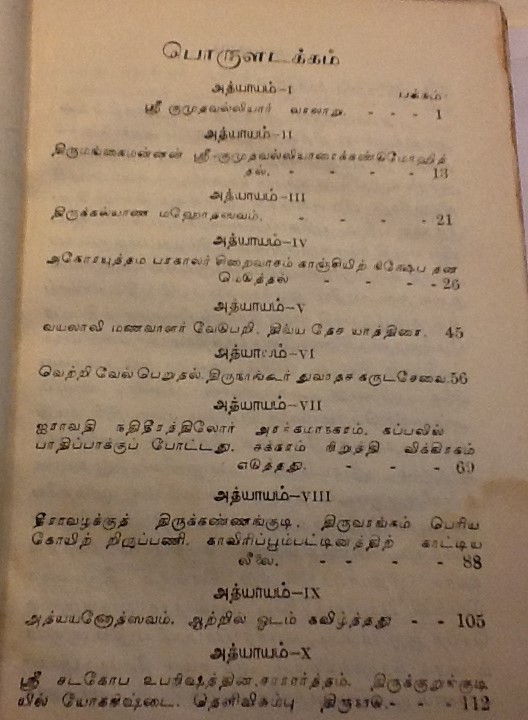 பொருளடக்கம்
அத்யாயம்-I
பக்கம்
ஸ்ரீ குமுதவல்லியார் வரலாறு. - - - 1
அத்யாயம்-II
திருமங்கைமன்னன் ஸ்ரீ-குமுதவல்லியாரைக்கண்டுமோஹித்
தல். - - - - 13
அத்யாயம்-III
திருக்கல்யாண மஹோத்ஸவம். - - - - 21
அத்யாயம்-IV
அகோரயுத்தம் பரகாலர் சிறைவாசம் காஞ்சியிற் தன
மெடுத்தல் - - - - 26
அத்யாயம்-V
வயலாலி மணவாளர் வேடுபறி. திவ்ய தேச யாத்திரை. 45
அத்யாயம்-VI
வெற்றி வேல் பெறுதல். திருநாங்கூர் துவாதச கருடசேவை. 56
அத்யாயம்-VII
ஐராவதி நதிதீரத்திலோர் கப்பலில்
பாதிப்பாக்குப் போட்டது. சக்கரம் நிறுத்தி விக்கிரகம்
எடுத்தது. - - - 69
அத்யாயம்-VIII
தீராவழக்குத் திருக்கண்ணங்குடி. திருவரங்கம் பெரிய
கோயிற் றிருப்பணி. காவிரிப்பூம்பட்டினத்திற் காட்டிய
லீலை. - - - - - 88
அத்யாயம்-IX
அத்யயனோத்ஸவம். ஆற்றில் ஓடம் கவிழ்த்தது - - 105
அத்யாயம்-X
ஸ்ரீ சடகோப உபநிஷத்தின் சாரார்த்தம். திருக்குறுங்குடி
யில் யோகநிஷ்டை. தெளிவிசும்பு திருநாடு.- - - 112